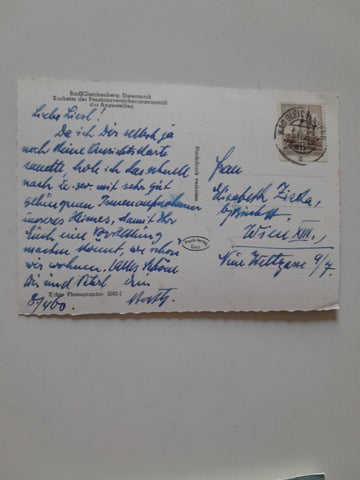 Bad Gleichenberg, Steiermark
Kurheim der Pensionsversicherungsanstalt
der Angestellten
Liebe Liesl!
Da ich Dir selbst ja
noch keine Ansichtskarte
sandte, hole ich das schnell
nach u. zw. mit sehr gut
gelungenen Innenaufnahmen
unseres Heimes, damit Ihr
Euch eine Vorstellung
machen könnt, wie schön
wir wohnen. Alles Schöne
Dir und
8/400.
Echte Photographie
Nachdruck verboten
Frau
Elisabeth
Wien XIII.,
Neue Weltgasse 9/7.